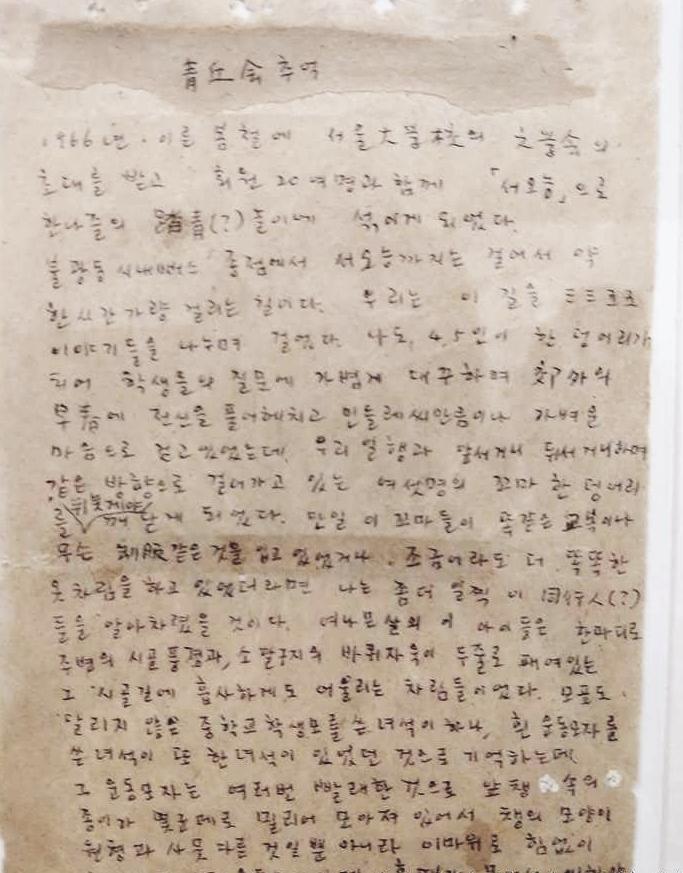 青丘会 추억
1966년. 이른 봄철에 서울大 문학회의
초대를 받고 회원 20여명과 함께 「서오능」으로
한나절의 踏青(?)놀이에 섞이게 되었다.
불광동 시내뻐스 종점에서 서오능까지는 걸어서 약
한시간가량 걸리는 길이다. 우리는 이 길을 三三五五
이야기들을 나누며 걸었다. 나도, 4,5인이 한 덩어리가
되어 학생들의 질문에 가볍게 대꾸하며 교外의
早春에 전신을 풀어헤치고 민들레씨만큼이나 가벼운
마음으로 걷고있었는데, 우리 일행과 앞서거니 뒤서거니하며
같은 방향으로 걸어가고 있는 여섯명의 꼬마 한 덩어리
를 뒤늦게야 깨닫게 되었다. 만일 이 꼬마들이 똑같은 교복이나
무슨 制服같은 것을 입고 있었거나. 조금이라도 더 똑똑한
옷차림을 하고 있었더라면 나는 좀더 일찍 이 同行人(?)
들을 알아차렸을 것이다. 여나믄살의 이 아이들은 한마디로
주변의 시골 풍경과, 소달구지의 바퀴자욱이 두줄로 패여있는
그 시골길에 흡사하게도 어울리는 차림들이었다. 모표도
달리지 않은 중학교학생모를 쓴 녀석이 하나, 흰 운동모자를
쓴 녀석이 또 한녀석이 있었던 것으로 기억하는데,
그 운동모자는 여러번 빨래한 것으로 앞챙 속의
종이가 몇군데로 밀리어 모아져 있어서 챙의 모양이
원형과 사뭇 다른 것일뿐 아니라 이마위로 힘없이